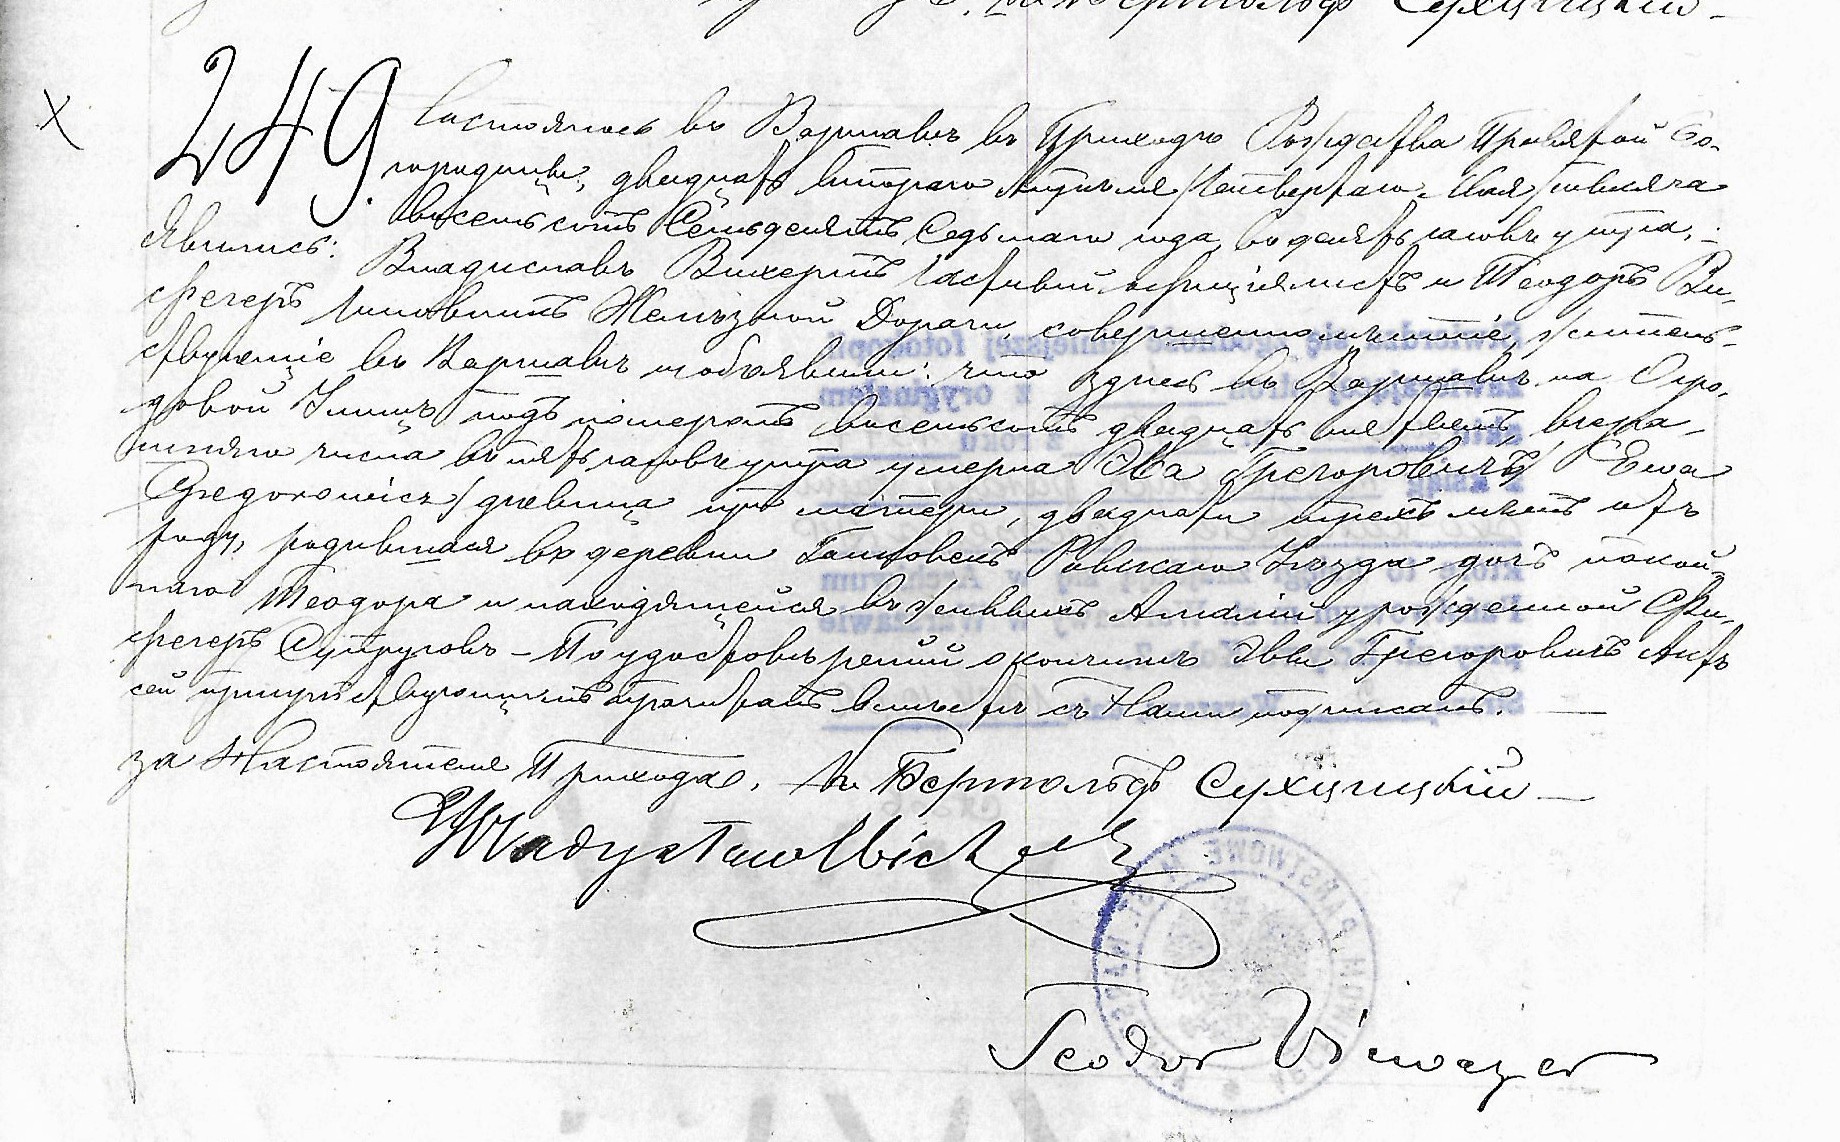 Бертольдъ Сухцицкій
249.
Состоялось въ Варшавѣ въ Приходѣ Рождества Пресвятой Бо-
городицы, двадцать втораго Апрѣля /четвертаго Мая/ тысяча
восемьсотъ Семьдесятъ Седьмаго года, въ десять часовъ утра,
Явились: Владиславъ Вихертъ частный оффиціялистъ и Теодоръ Ви-
вегеръ Чиновникъ Желѣзной Дороги совершеннолѣтніе житель-
ствующіе въ Варшавѣ и объявили: что здѣсь въ Варшавѣ на Огро-
довой Улицѣ подъ номеромъ восемьсотъ двадцать вчера-
шняго числа въ пять часовъ утра умерла Эва Грегоровичъ /Ewa
Gregorowicz/ дѣвица при матери, двадцати трехъ лѣтъ отъ
роду, родившаяся въ деревни Равскаго Уѣзда дочь покой-
наго Теодора и находящейся въ живыхъ Амаліи урожденной
Супруговъ – По удостовѣреніи о кончинѣ Эвы Грегоровичъ Актъ
сей присутствующимъ прочитанъ вмѣстѣ съ Нами подписанъ. —
за Настоятеля Прихода, Кс. Бертольдъ Сухцицкій —
Władysław Wichert
Teodor Vieweger